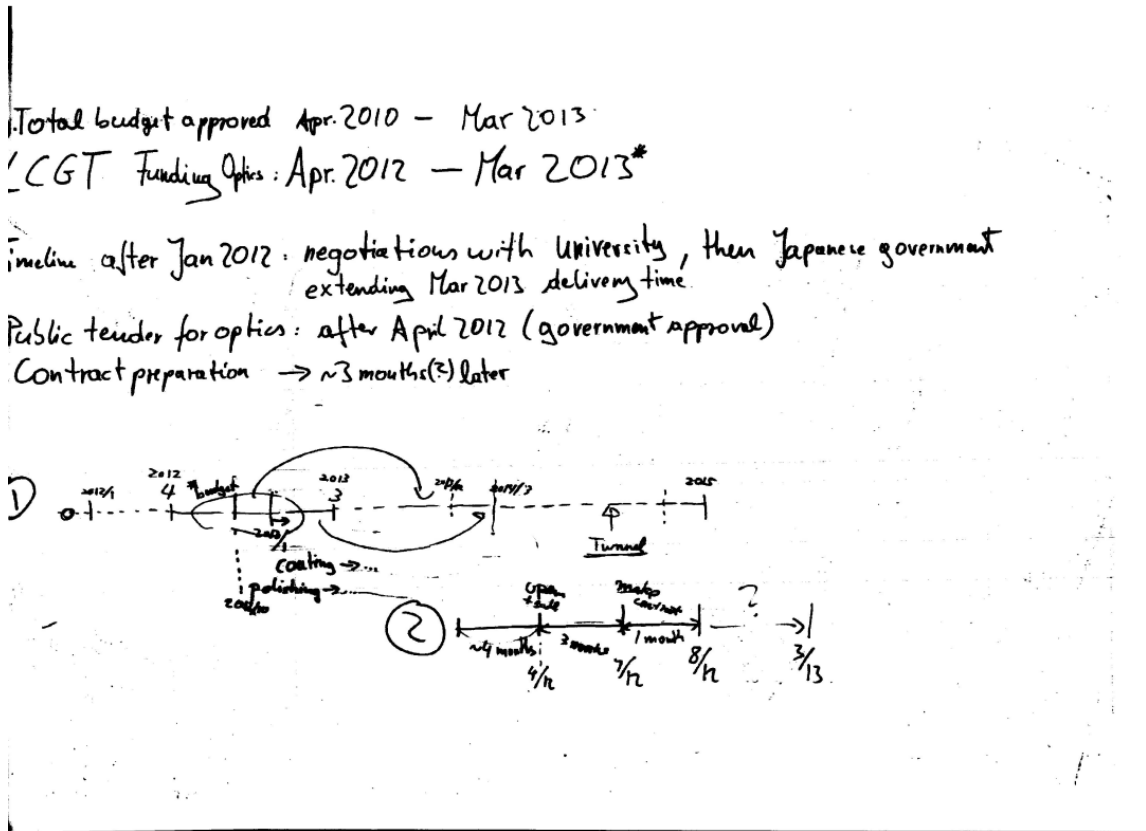 Total budget approved Apr. 2010 – Mar 2013
LCGT Funding Optics : Apr. 2012 – Mar 2013*
Timeline after Jan 2012 : negotiations with University, then Japanese government
extending Mar 2013 delivery time
Public tender for optics : after April 2012 (government approval)
Contract preparation → ~3 months(?) later
1
2012/1
2012
4
*budget
2013
3
2014/3
2015
Tunnel
coating → ...
polishing → ......
2
open
make
contract
~4 months
3 months
1 month
?
4/12
7/12
8/12
3/13